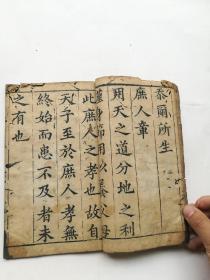 忝爾所生
庶人章
用天之道分地之利
謹身節用以養父母
此庶人之孝也故自
天子至於庶人孝無
終始而患不及者未
之有也